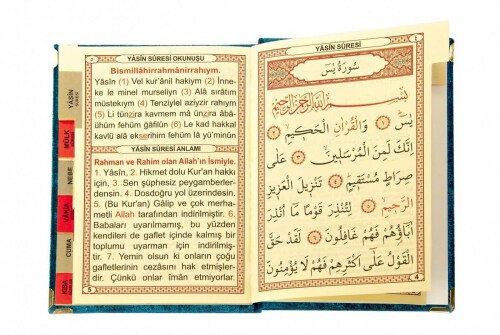 YÂSİN SÛRESİ OKUNUŞU
Bismillâhirrahmânirrahıym.
Yâsîn (1) Vel kur'ânil hakiym (2) İnne-
ke le minel murseliyn (3) Alâ sırâtım
müstekıym (4) Tenziylel aziyzir rahıym
(5) Li tünzira kavmem mâ ünzira âbâ-
ühüm fehüm ğâfilûn (6) Le kad hakkal
kavlü alâ ekserihim fehüm lâ yü'minûn
YÂSİN SÛRESİ ANLAMI
Rahman ve Rahim olan Allah'ın İsmiyle.
1. Yâsîn, 2. Hikmet dolu Kur'an hakkı
için, 3. Sen şüphesiz peygamberler-
densin. 4. Dosdoğru yol üzerindesin.
5. (Bu Kur'an) Gâlip ve çok merha-
metli Allah tarafından indirilmiştir. 6.
Babaları uyarılmamış, bu yüzden
kendileri de gaflet içinde kalmış bir
toplumu uyarman için indirilmiş-
tir. 7. Yemin olsun ki onların çoğu
gafletlerinin cezâsını hak etmişler-
dir. Çünkü onlar îman etmiyorlar.
5
YÂSİN
MÜLK
NEBE
VÂKIA
CUMA
KISA
YÂSİN SÛRESİ
سُورَةُ يٰسٓ
بِسْمِ اللّٰهِ الرَّحْمٰنِ الرَّحِيمِ
يٰسٓ ﴿١﴾ وَالْقُرْاٰنِ الْحَكِيمِ ﴿٢﴾
اِنَّكَ لَمِنَ الْمُرْسَلِينَ ﴿٣﴾ عَلٰى
صِرَاطٍ مُسْتَقِيمٍ ﴿٤﴾ تَنْزِيلَ الْعَزِيزِ
الرَّحِيمِ ﴿٥﴾ لِتُنْذِرَ قَوْمًا مَٓا اُنْذِرَ
اٰبَٓاؤُ۬هُمْ فَهُمْ غَافِلُونَ ﴿٦﴾ لَقَدْ حَقَّ
الْقَوْلُ عَلٰٓى اَكْثَرِهِمْ فَهُمْ لَا يُؤْمِنُونَ
4